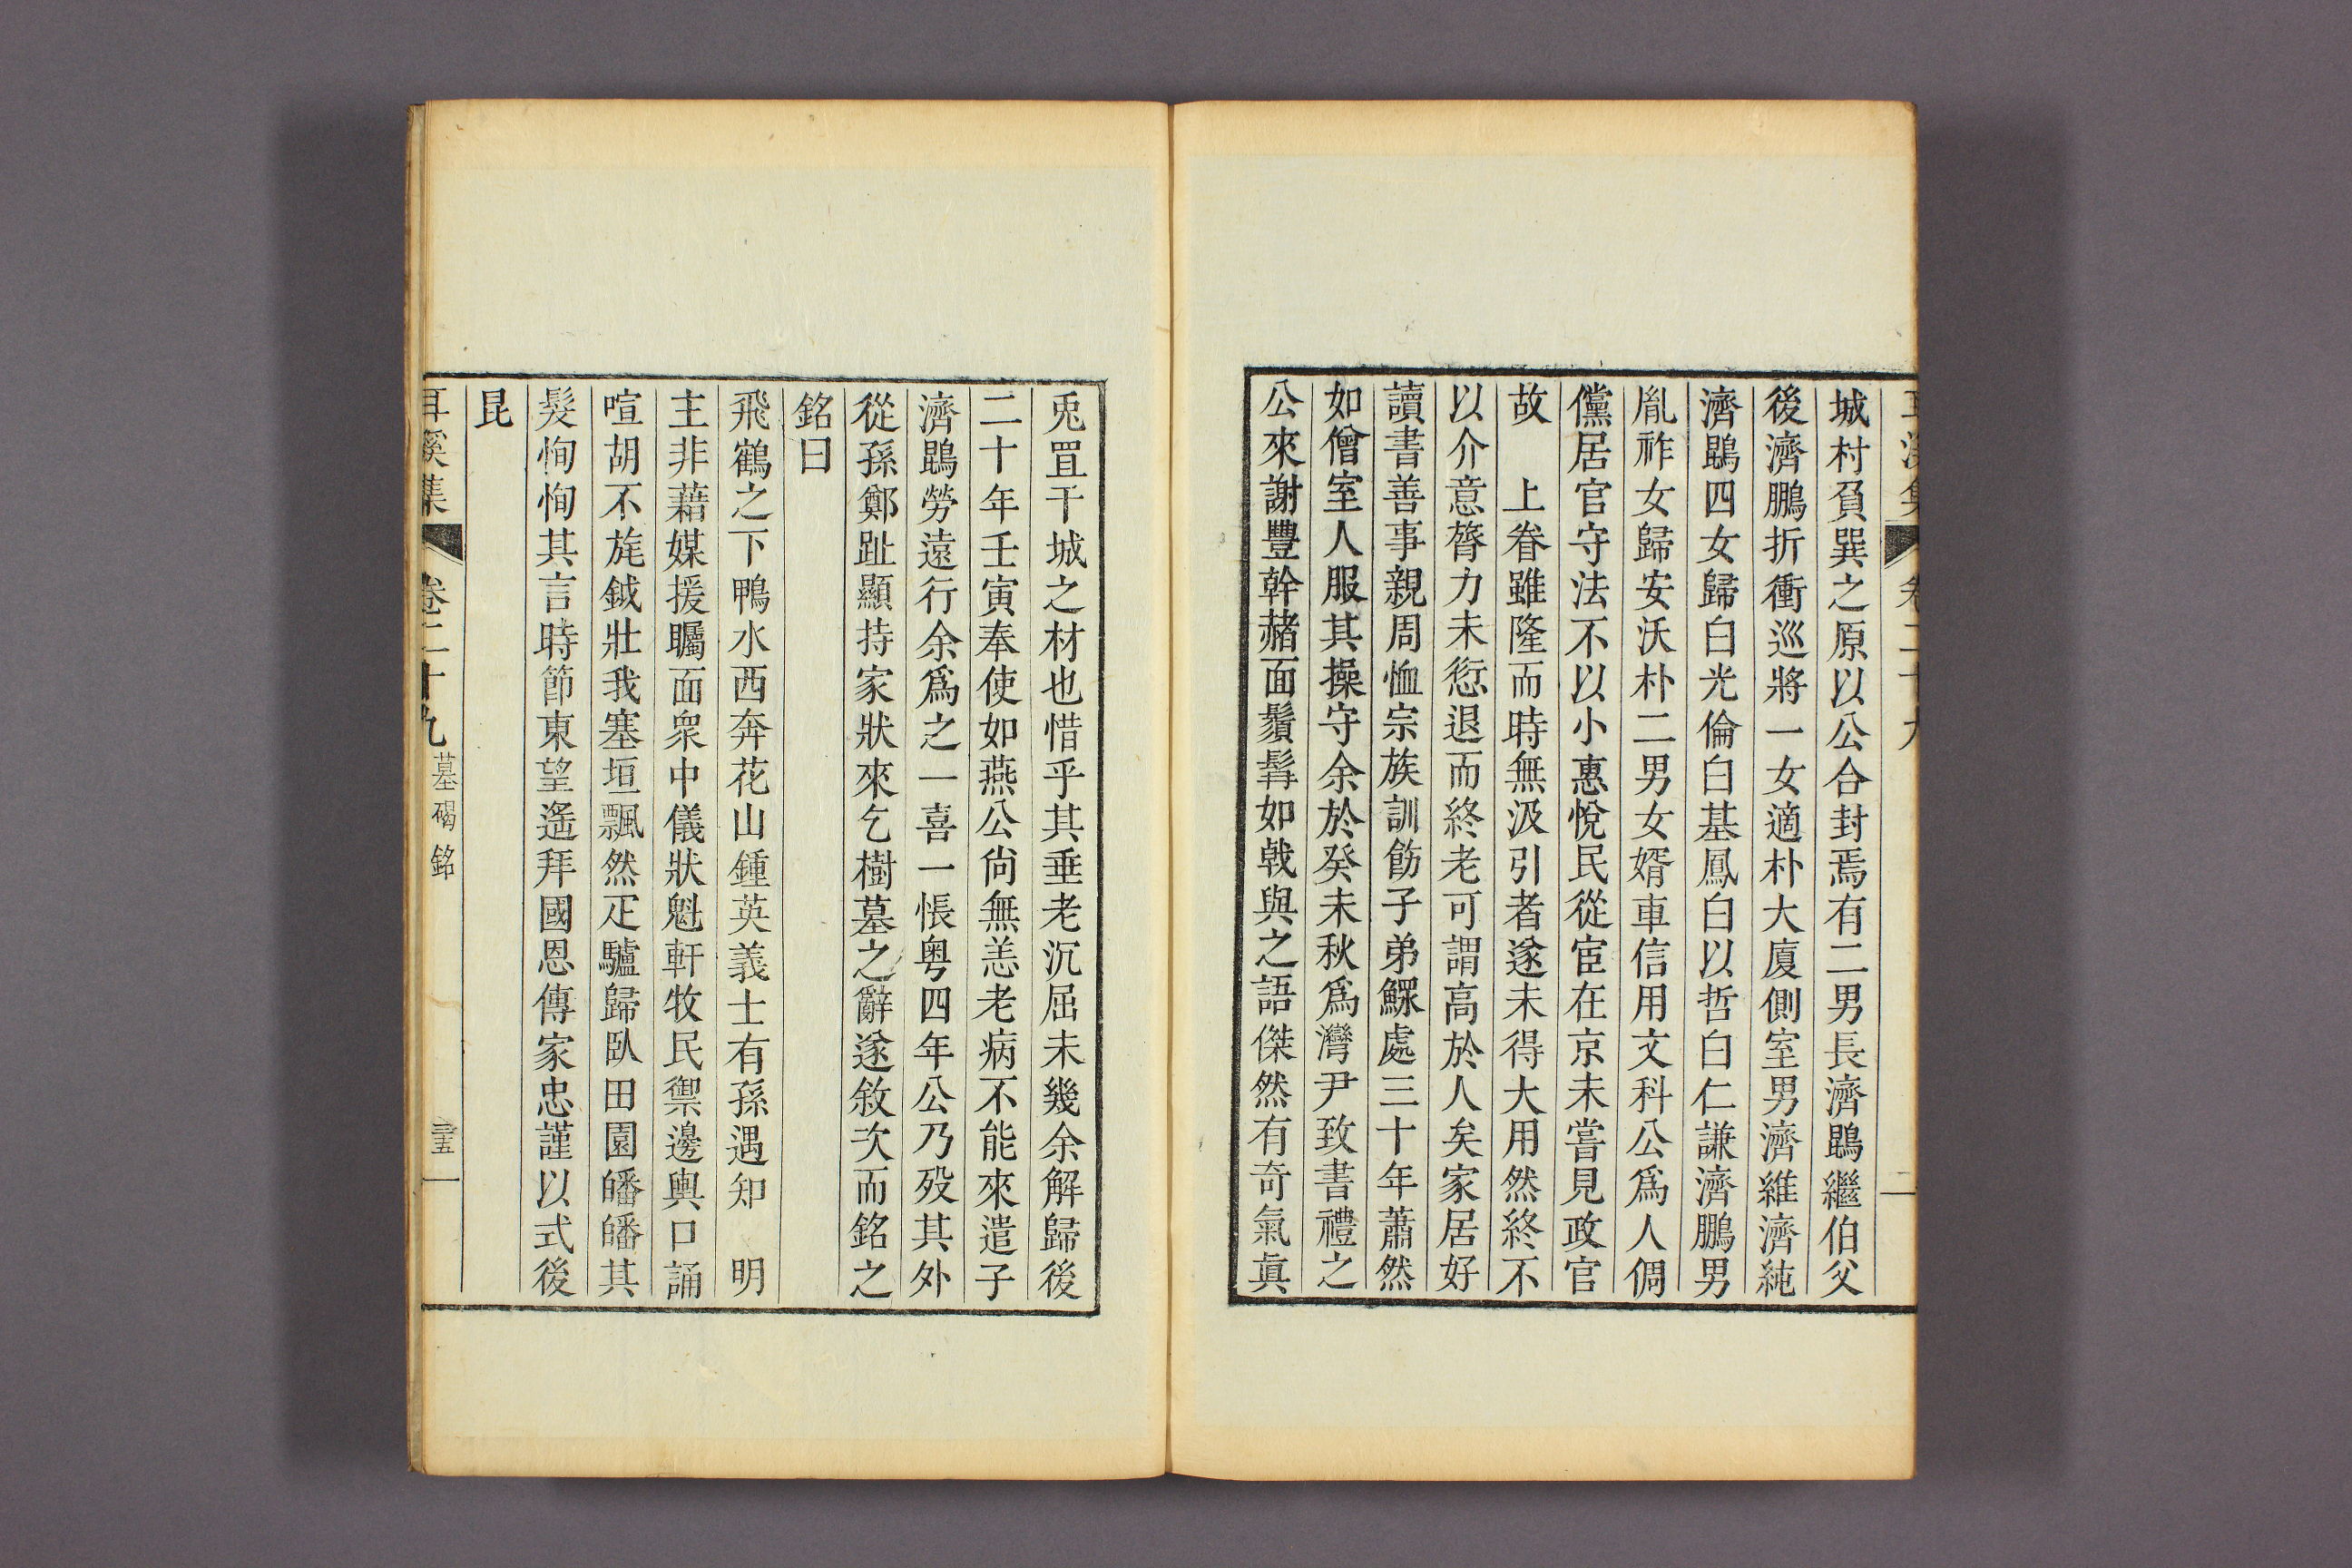 城村負巽之原以公合封焉有二男長濟鵾繼伯父
後濟鵬折衝巡將一女適朴大廈側室男濟維濟純
濟鵾四女歸白光倫白基鳳白以哲白仁謙濟鵬男
胤祚女歸安沃朴二男女婿車信用文科公爲人倜
儻居官守法不以小惠悅民從宦在京未嘗見政官
故 上眷雖隆而時無汲引者遂未得大用然終不
以介意膂力未愆退而終老可謂高於人矣家居好
讀書善事親周恤宗族訓飭子弟鰥處三十年蕭然
如僧室人服其操守余於癸未秋爲灣尹致書禮之
公來謝豐幹赭面鬚髯如戟與之語傑然有奇氣眞
兎罝干城之材也惜乎其垂老沉屈未幾余解歸後
二十年壬寅奉使如燕公尙無恙老病不能來遣子
濟鵾勞遠行余爲之一喜一悵粤四年公乃歿其外
從孫鄭趾顯持家狀來乞樹墓之辭遂敘次而銘之
銘曰
飛鶴之下鴨水西奔花山鍾英義士有孫遇知 明
主非藉媒援矚面衆中儀狀魁軒牧民禦邊輿口誦
喧胡不旄鉞壯我塞垣飄然疋驢歸臥田園皤皤其
髮恂恂其言時節東望遙拜國恩傳家忠謹以式後
昆
耳溪集 卷二十九 墓碣銘